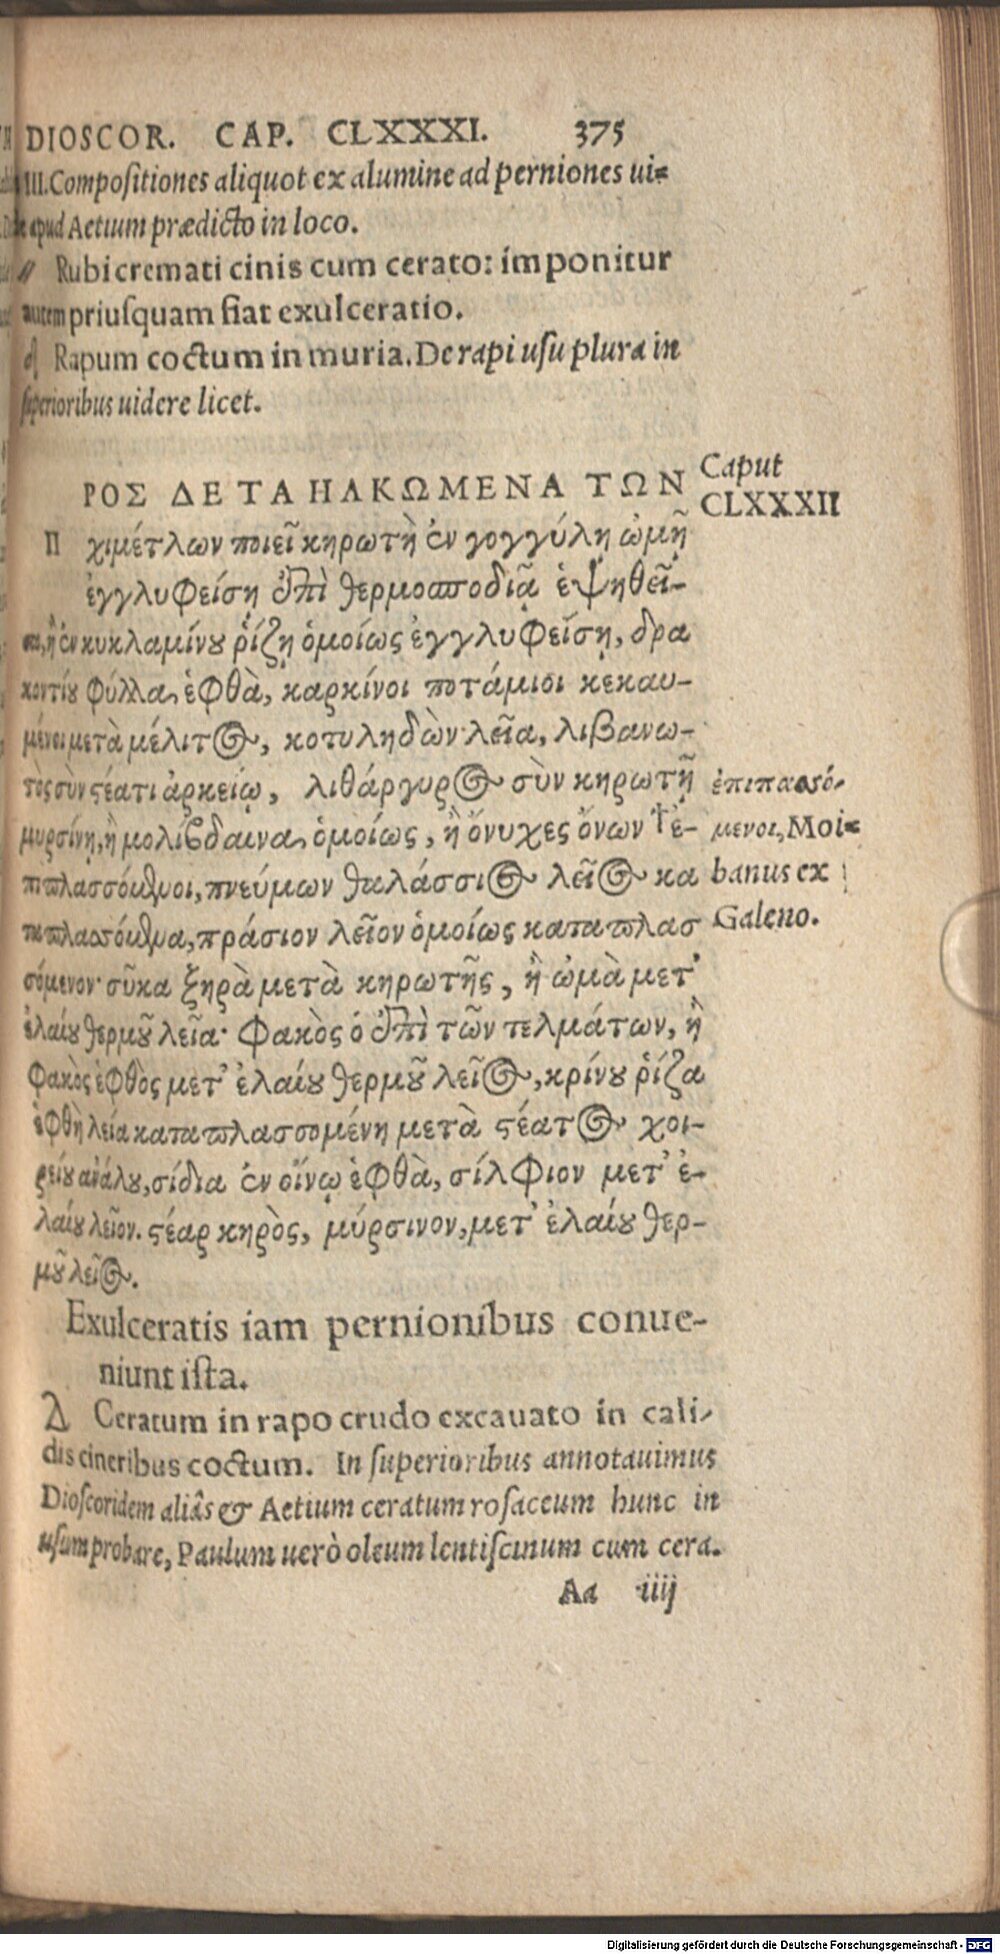 DIOSCOR. CAP. CLXXXI. 375
III. Compositiones aliquot ex alumine ad perniones ui-
apud Aetium prædicto in loco.
Rubi cremati cinis cum cerato: imponitur
autem priusquam fiat exulceratio.
Rapum coctum in muria. De rapi usu plura in
superioribus uidere licet.
ΡΟΣ ΔΕ ΤΑ ΗΛΚΩΜΕΝΑ ΤΩΝ
Caput
CLXXXII
Π χιμέτλων ποιεῖ κηρωτὴ ἐν γογγύλῃ ὠμῇ
ἐγγλυφείσῃ ἐπὶ θερμοσποδιᾷ ἑψηθεῖ-
σα, ἢ ἐν κυκλαμίνου ῥίζῃ ὁμοίως ἐγγλυφείσῃ, δρα
κοντίου φύλλα ἑφθὰ, καρκίνοι ποτάμιοι κεκαυ-
μένοι μετὰ μέλιτος, κοτυληδὼν λεῖα, λιβανω-
τὸς σὺν στέατι ἀρκείῳ, λιθάργυρος σὺν κηρωτῇ
μυρσίνῃ, ἢ μολίβδαινα ὁμοίως, ἢ ὄνυχες ὄνων †ἐ-
πιπλασσόμενοι, πνεύμων θαλάσσιος λεῖος κα
ταπλασσόμενα, πράσιον λεῖον ὁμοίως καταπλασ
σόμενον· σῦκα ξηρὰ μετὰ κηρωτῆς, ἢ ὠμὰ μετ'
ἐλαίου θερμοῦ λεῖα· φακὸς ὁ ἐπὶ τῶν τελμάτων, ἢ
φακὸς ἑφθὸς μετ' ἐλαίου θερμοῦ λεῖος, κρίνου ῥίζα
ἑφθὴ λεία καταπλασσομένη μετὰ στέατος χοι-
ρείου ἀνάλου, σίδια ἐν οἴνῳ ἑφθὰ, σίλφιον μετ' ἐ-
λαίου λεῖον. στέαρ κηρὸς, μύρσινον, μετ' ἐλαίου θερ-
μοῦ λεῖος.
ἐπιπασσό-
μενοι, Moi-
banus ex
Galeno.
Exulceratis iam pernionibus conue-
niunt ista.
Λ Ceratum in rapo crudo excauato in cali-
dis cineribus coctum. In superioribus annotauimus
Dioscoridem aliâs & Aetium ceratum rosaceum hunc in
usum probare, Paulum uerò oleum lentiscinum cum cera.
Aa iiij
Digitalisierung gefördert durch die Deutsche Forschungsgemeinschaft - DFG